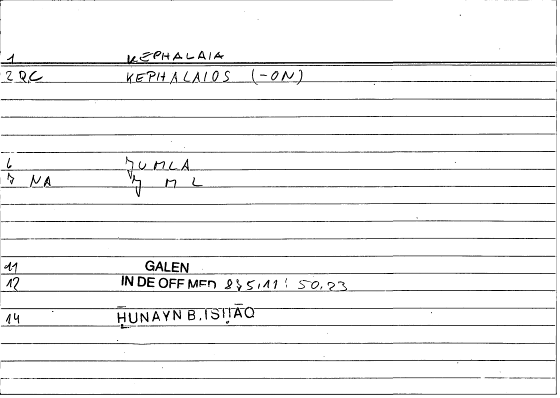 1 KEPHALAIA
2 QC KEPHALAIOS (-ON)
6 ǦUMLA
7 NA Ǧ M L
11 GALEN
12 IN DE OFF MED 835,11: 50,23
14 ḤUNAYN B. ISḤĀQ